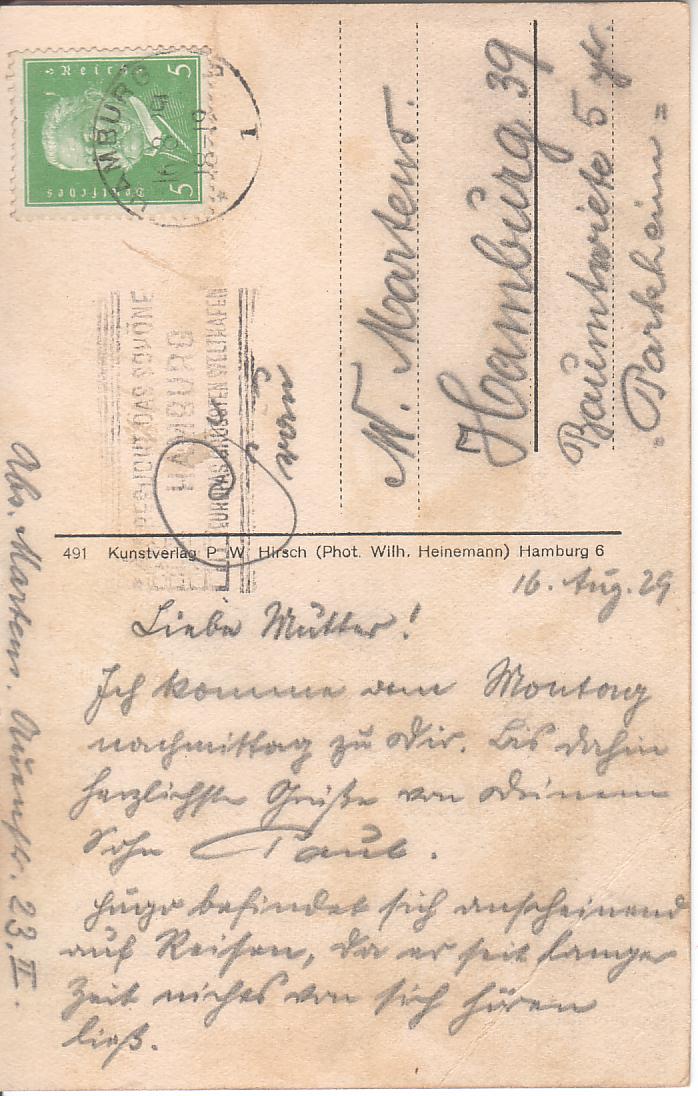 5 Reich 5
Deutsches
HAMBURG
1
16.8.29
18-19
BESUCHT DAS SCHÖNE
HAMBURG
EUROPAS GROSSEN WELTHAFEN
W. Martens.
Hamburg 39
Baumtwiete 5 ptr.
"Parkheim"
491 Kunstverlag P. W. Hirsch (Phot. Wilh. Heinemann) Hamburg 6
16. Aug. 29
Liebe Mutter!
Ich komme am Montag
nachmittag zu Dir. Bis dahin
herzlichste Grüße von Deinem
Sohn Paul.
Hugo befindet sich anscheinend
auf Reisen, da er seit langer
Zeit nichts von sich hören
ließ.
Abs. Martens. Auenstr. 23. II.